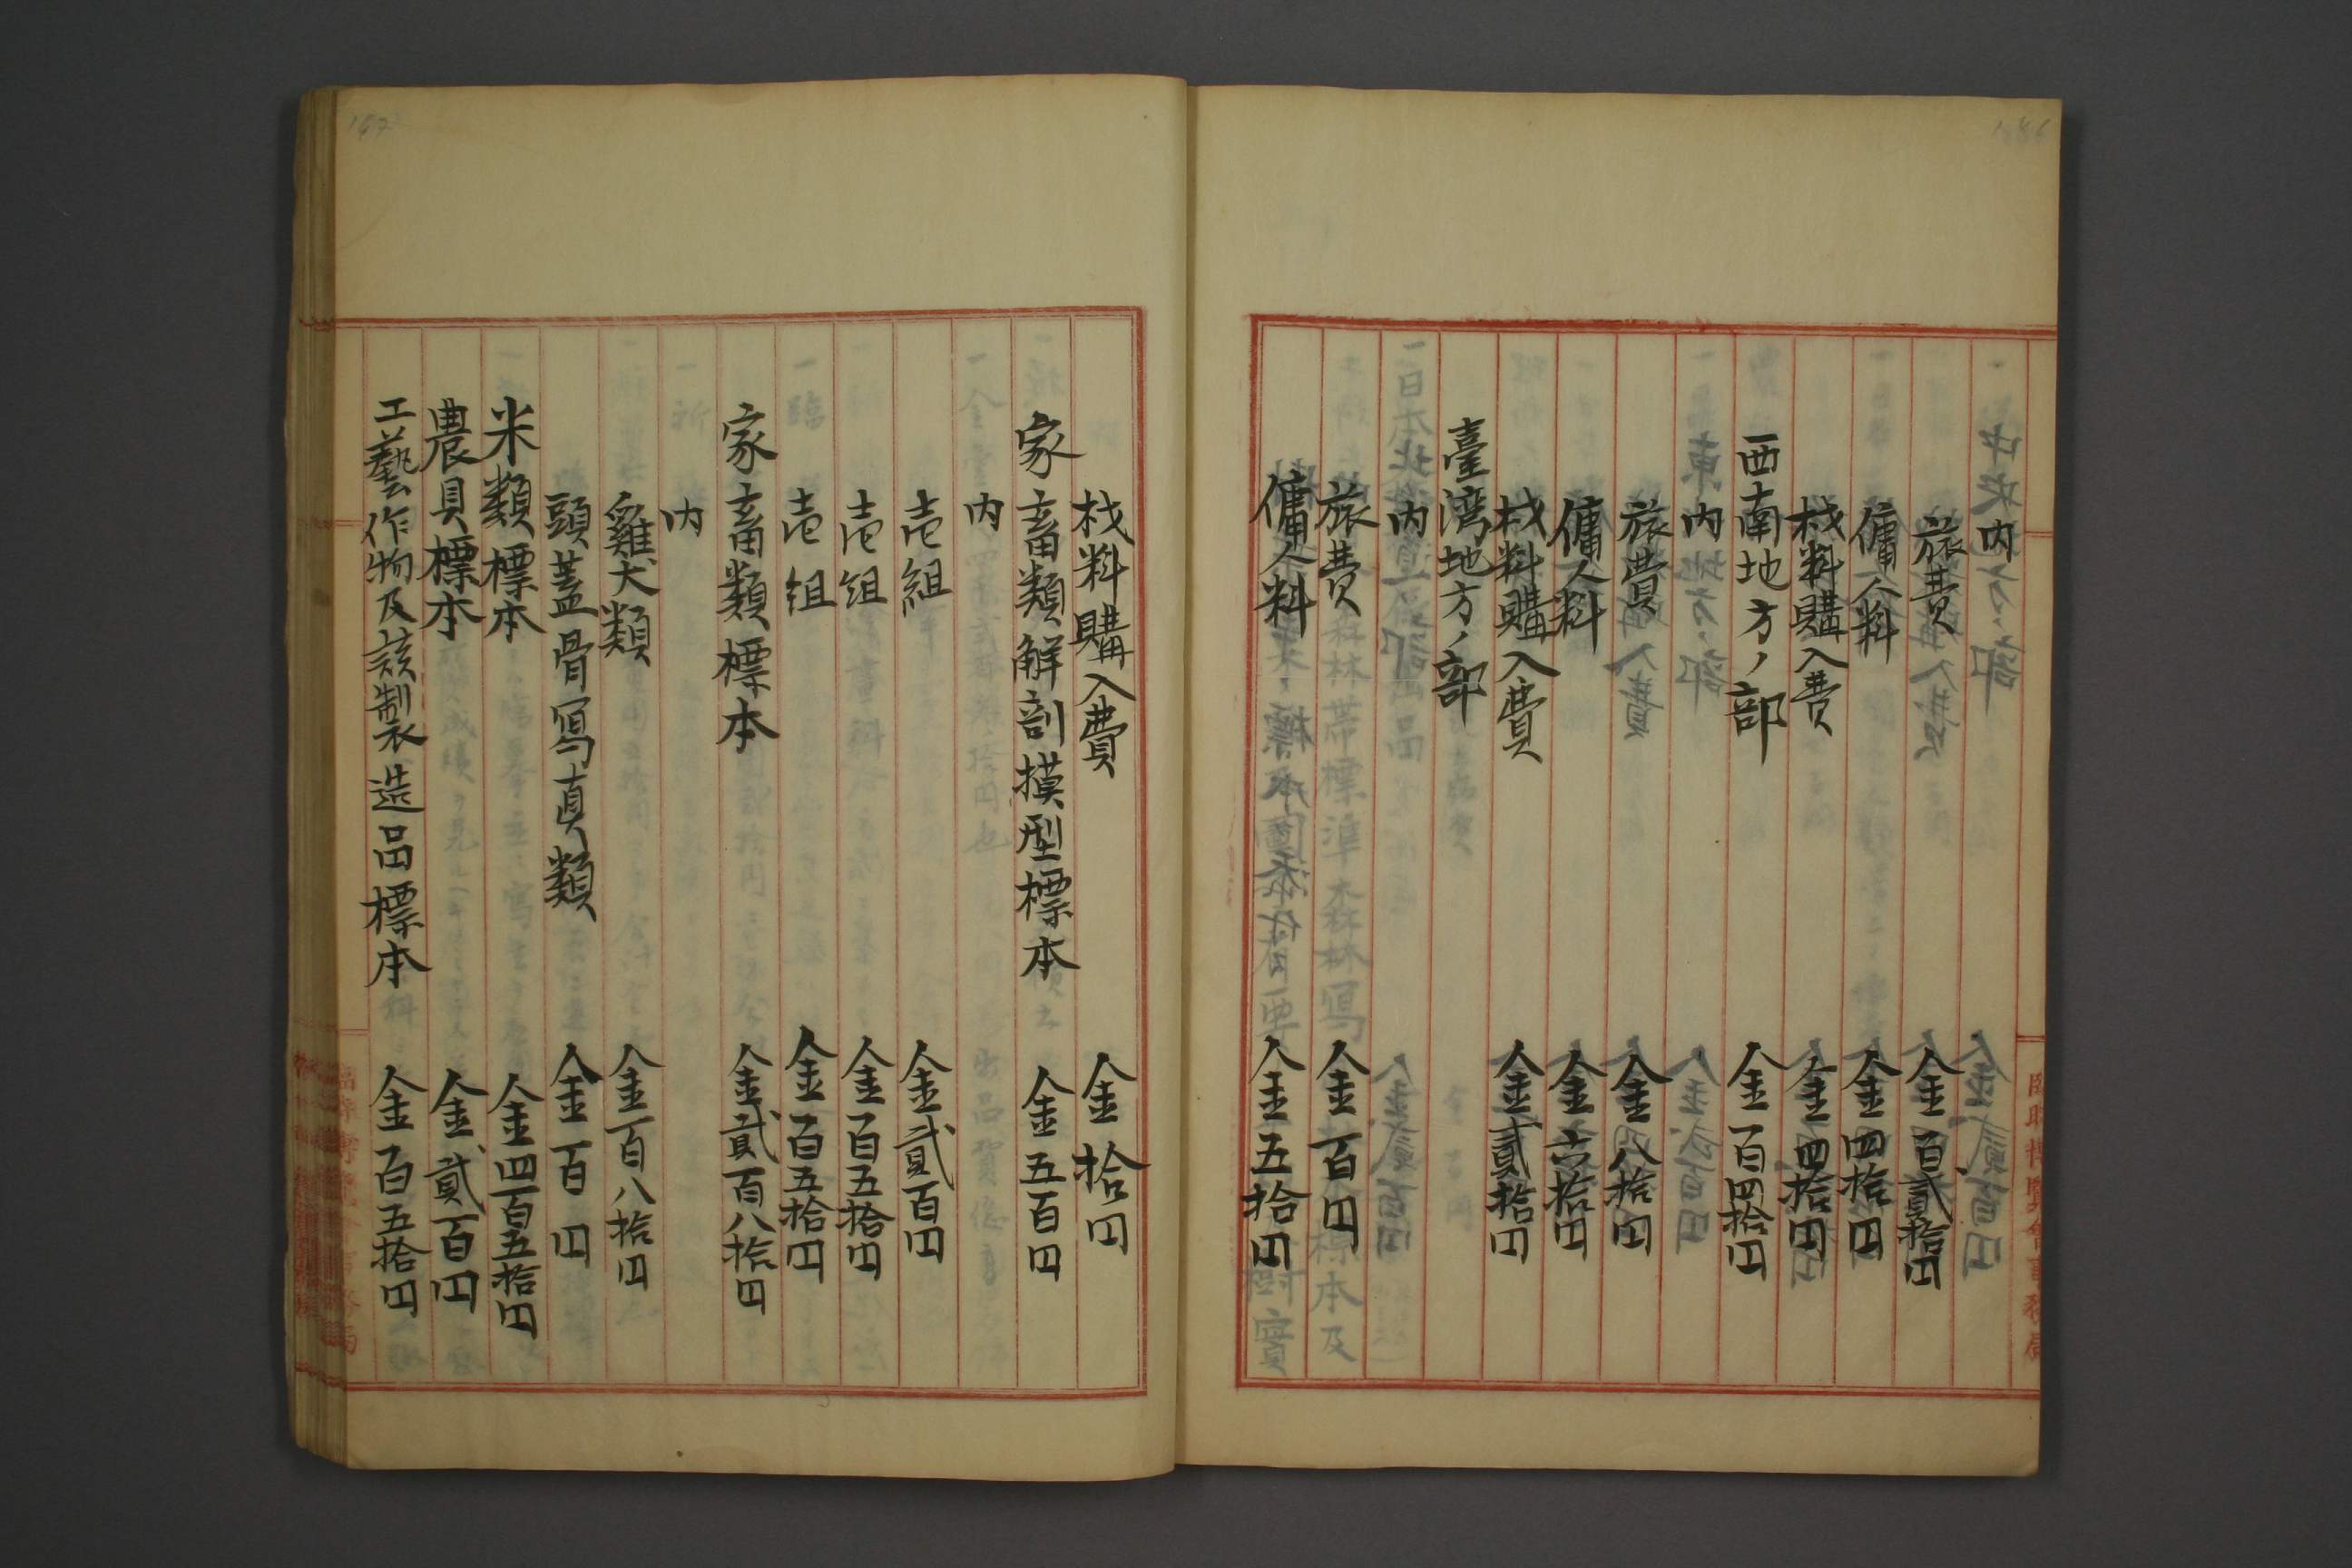 内
旅費 金百貳拾円
傭人料 金四拾円
材料購入費 金四拾円
西南地方ノ部 金百四拾円
内
旅費 金八拾円
傭人料 金六拾円
材料購入費 金貳拾円
臺湾地方ノ部
内
旅費 金百円
傭人料 金五拾円
材料購入費 金拾円
家畜類解剖摸型標本 金五百円
内
壱組 金貳百円
壱組 金百五拾円
壱組 金百五拾円
家畜類標本 金貳百八拾円
内
雞犬類 金百八拾円
頭蓋骨寫真類 金百円
米類標本 金四百五拾円
農具標本 金貳百円
工藝作物及該製造品標本 金百五拾円